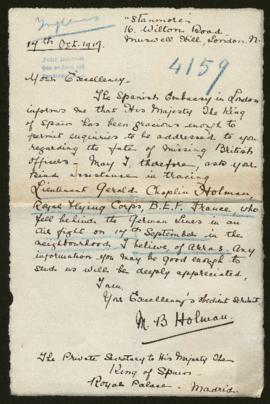 Inglesa
"Stanmore"
16. Wilton Road
17th Oct. 1917.
Muswell Hill, London N.
4159
Your Excellency -
The Spanish Embassy in London
informs me that His Majesty The King
of Spain has been gracious enough to
permit enquiries to be addressed to you
regarding the fate of missing British
officers - May I, therefore, ask your
kind assistance in tracing
Lieutenant Gerald Choplin Holman
Royal Flying Corps, B.E.F. France, who
fell behind the German Lines in an
Air fight on 17th September in the
neighbourhood, I believe of Arras. Any
information you may be good enough to
send us will be deeply appreciated.
I am,
Your Excellency's obedient Servant
M. B Holman.
The Private Secretary to His Majesty The
King of Spain
Royal Palace - Madrid.